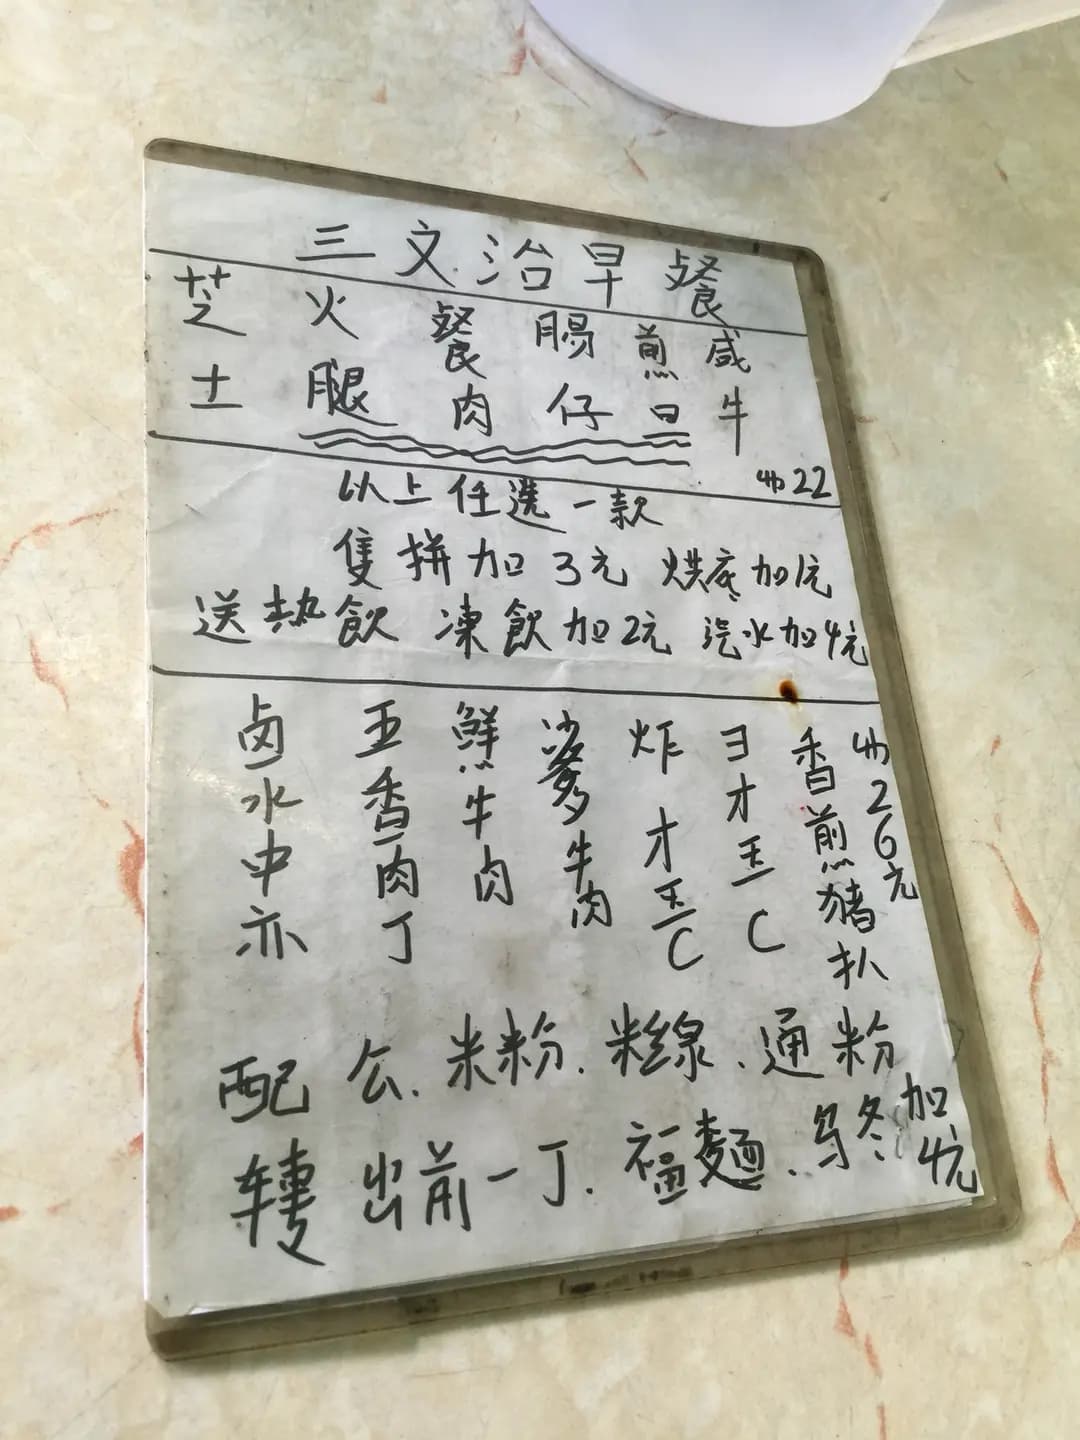 三文治早餐
芝士
火腿
餐肉
腸仔
煎旦
咸牛
22
以上任選一款
隻拼加3元 烘底加1元
送热飲 凍飲加2元 汽水加4元
卤水中亦
五香肉丁
鮮牛肉
沙爹牛肉
炸才王C
ヨ才王C
香煎豬扒
26元
配 公.米粉.米線.通粉
轉 出前一丁.福麵.烏冬加4元